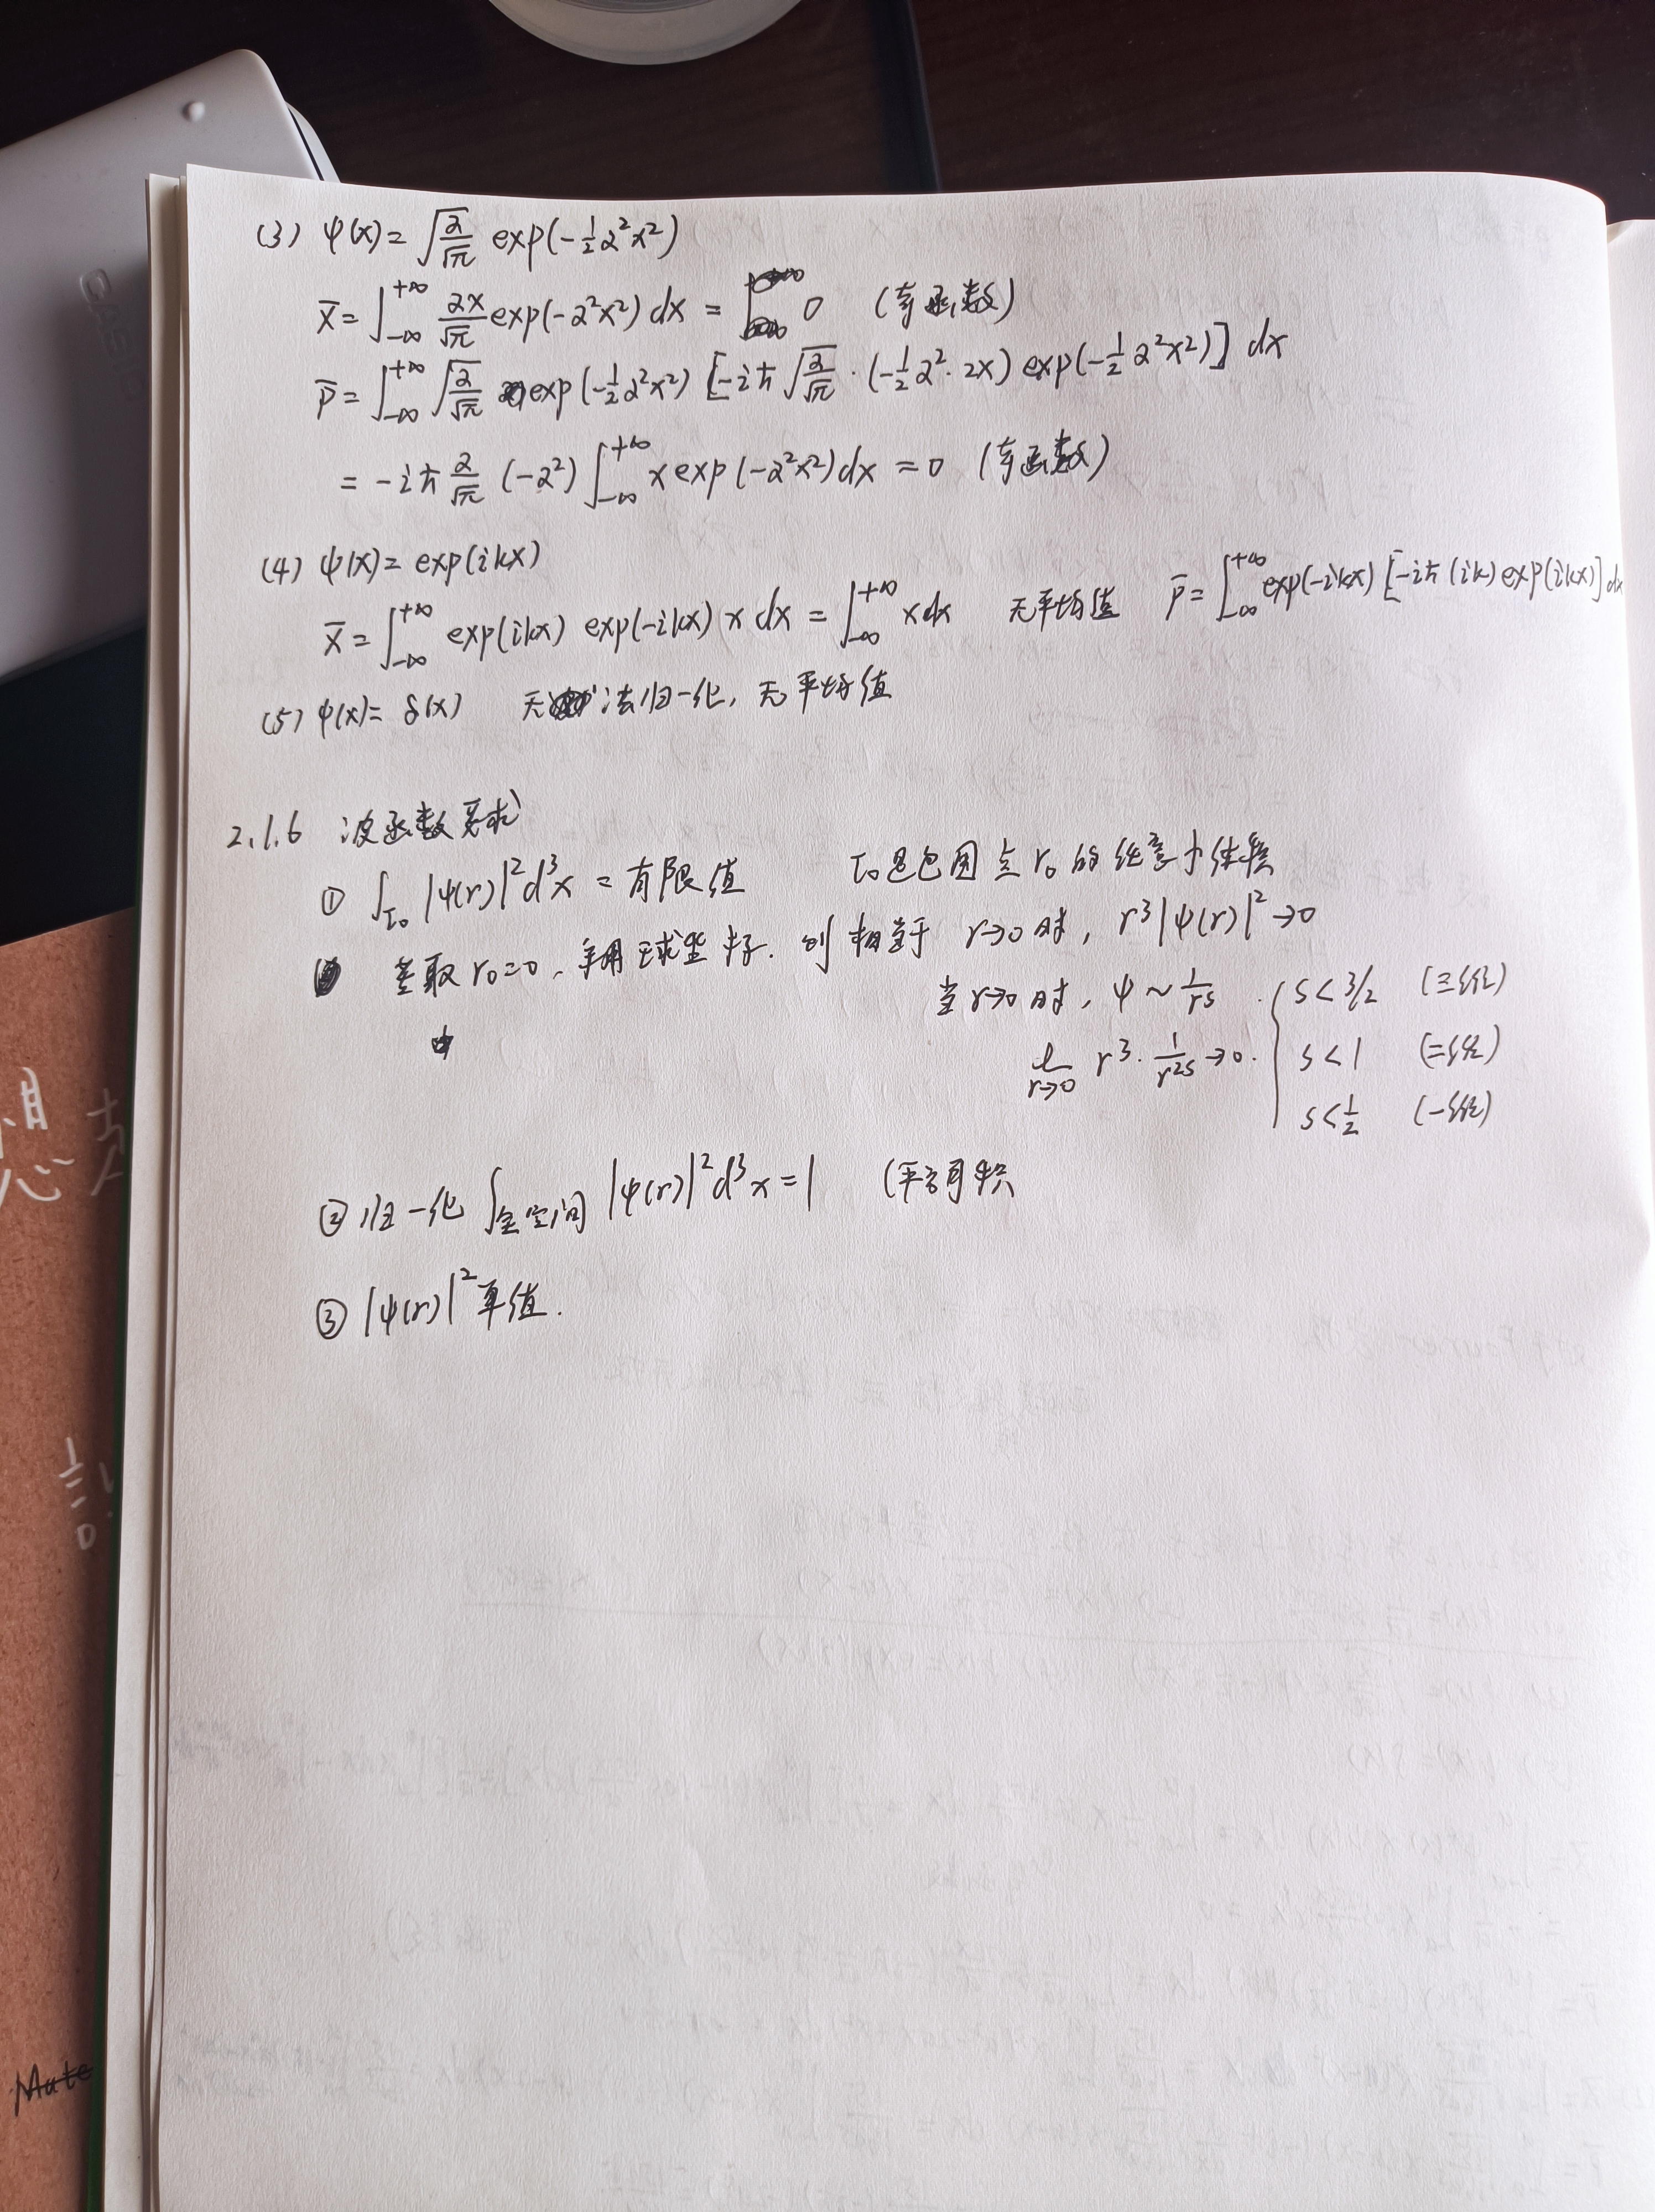 CASIO
(3) ψ(x)= √(α/√π) exp(-½α²x²)
x̄ = ∫_{-∞}^{+∞} αx/√π exp(-α²x²) dx = 0 (奇函数)
p̄ = ∫_{-∞}^{+∞} √(α/√π) exp(-½α²x²) [-iħ √(α/√π) · (-½α²·2x) exp(-½α²x²)] dx
= -iħ α/√π (-α²) ∫_{-∞}^{+∞} x exp(-α²x²) dx = 0 (奇函数)
(4) ψ(x)= exp(ikx)
x̄ = ∫_{-∞}^{+∞} exp(ikx) exp(-ikx) x dx = ∫_{-∞}^{+∞} x dx 无平均值 p̄ = ∫_{-∞}^{+∞} exp(-ikx) [-iħ (ik) exp(ikx)] dx
(5) ψ(x)= δ(x) 无法归一化, 无平均值
2.1.6 波函数要求
① ∫_{τ₀} |ψ(r)|² d³x = 有限值 τ₀是包围点r₀的任意小体积
若取r₀=0, 采用球坐标. 则相当于 r→0时, r³|ψ(r)|²→0
当r→0时, ψ ~ 1/rˢ . { s < 3/2 (三维)
lim_{r→0} r³ · 1/r²ˢ → 0. s < 1 (二维)
s < ½ (一维)
② 归一化 ∫_{全空间} |ψ(r)|² d³x = 1 (平方可积
③ |ψ(r)|² 单值.
想
Mate